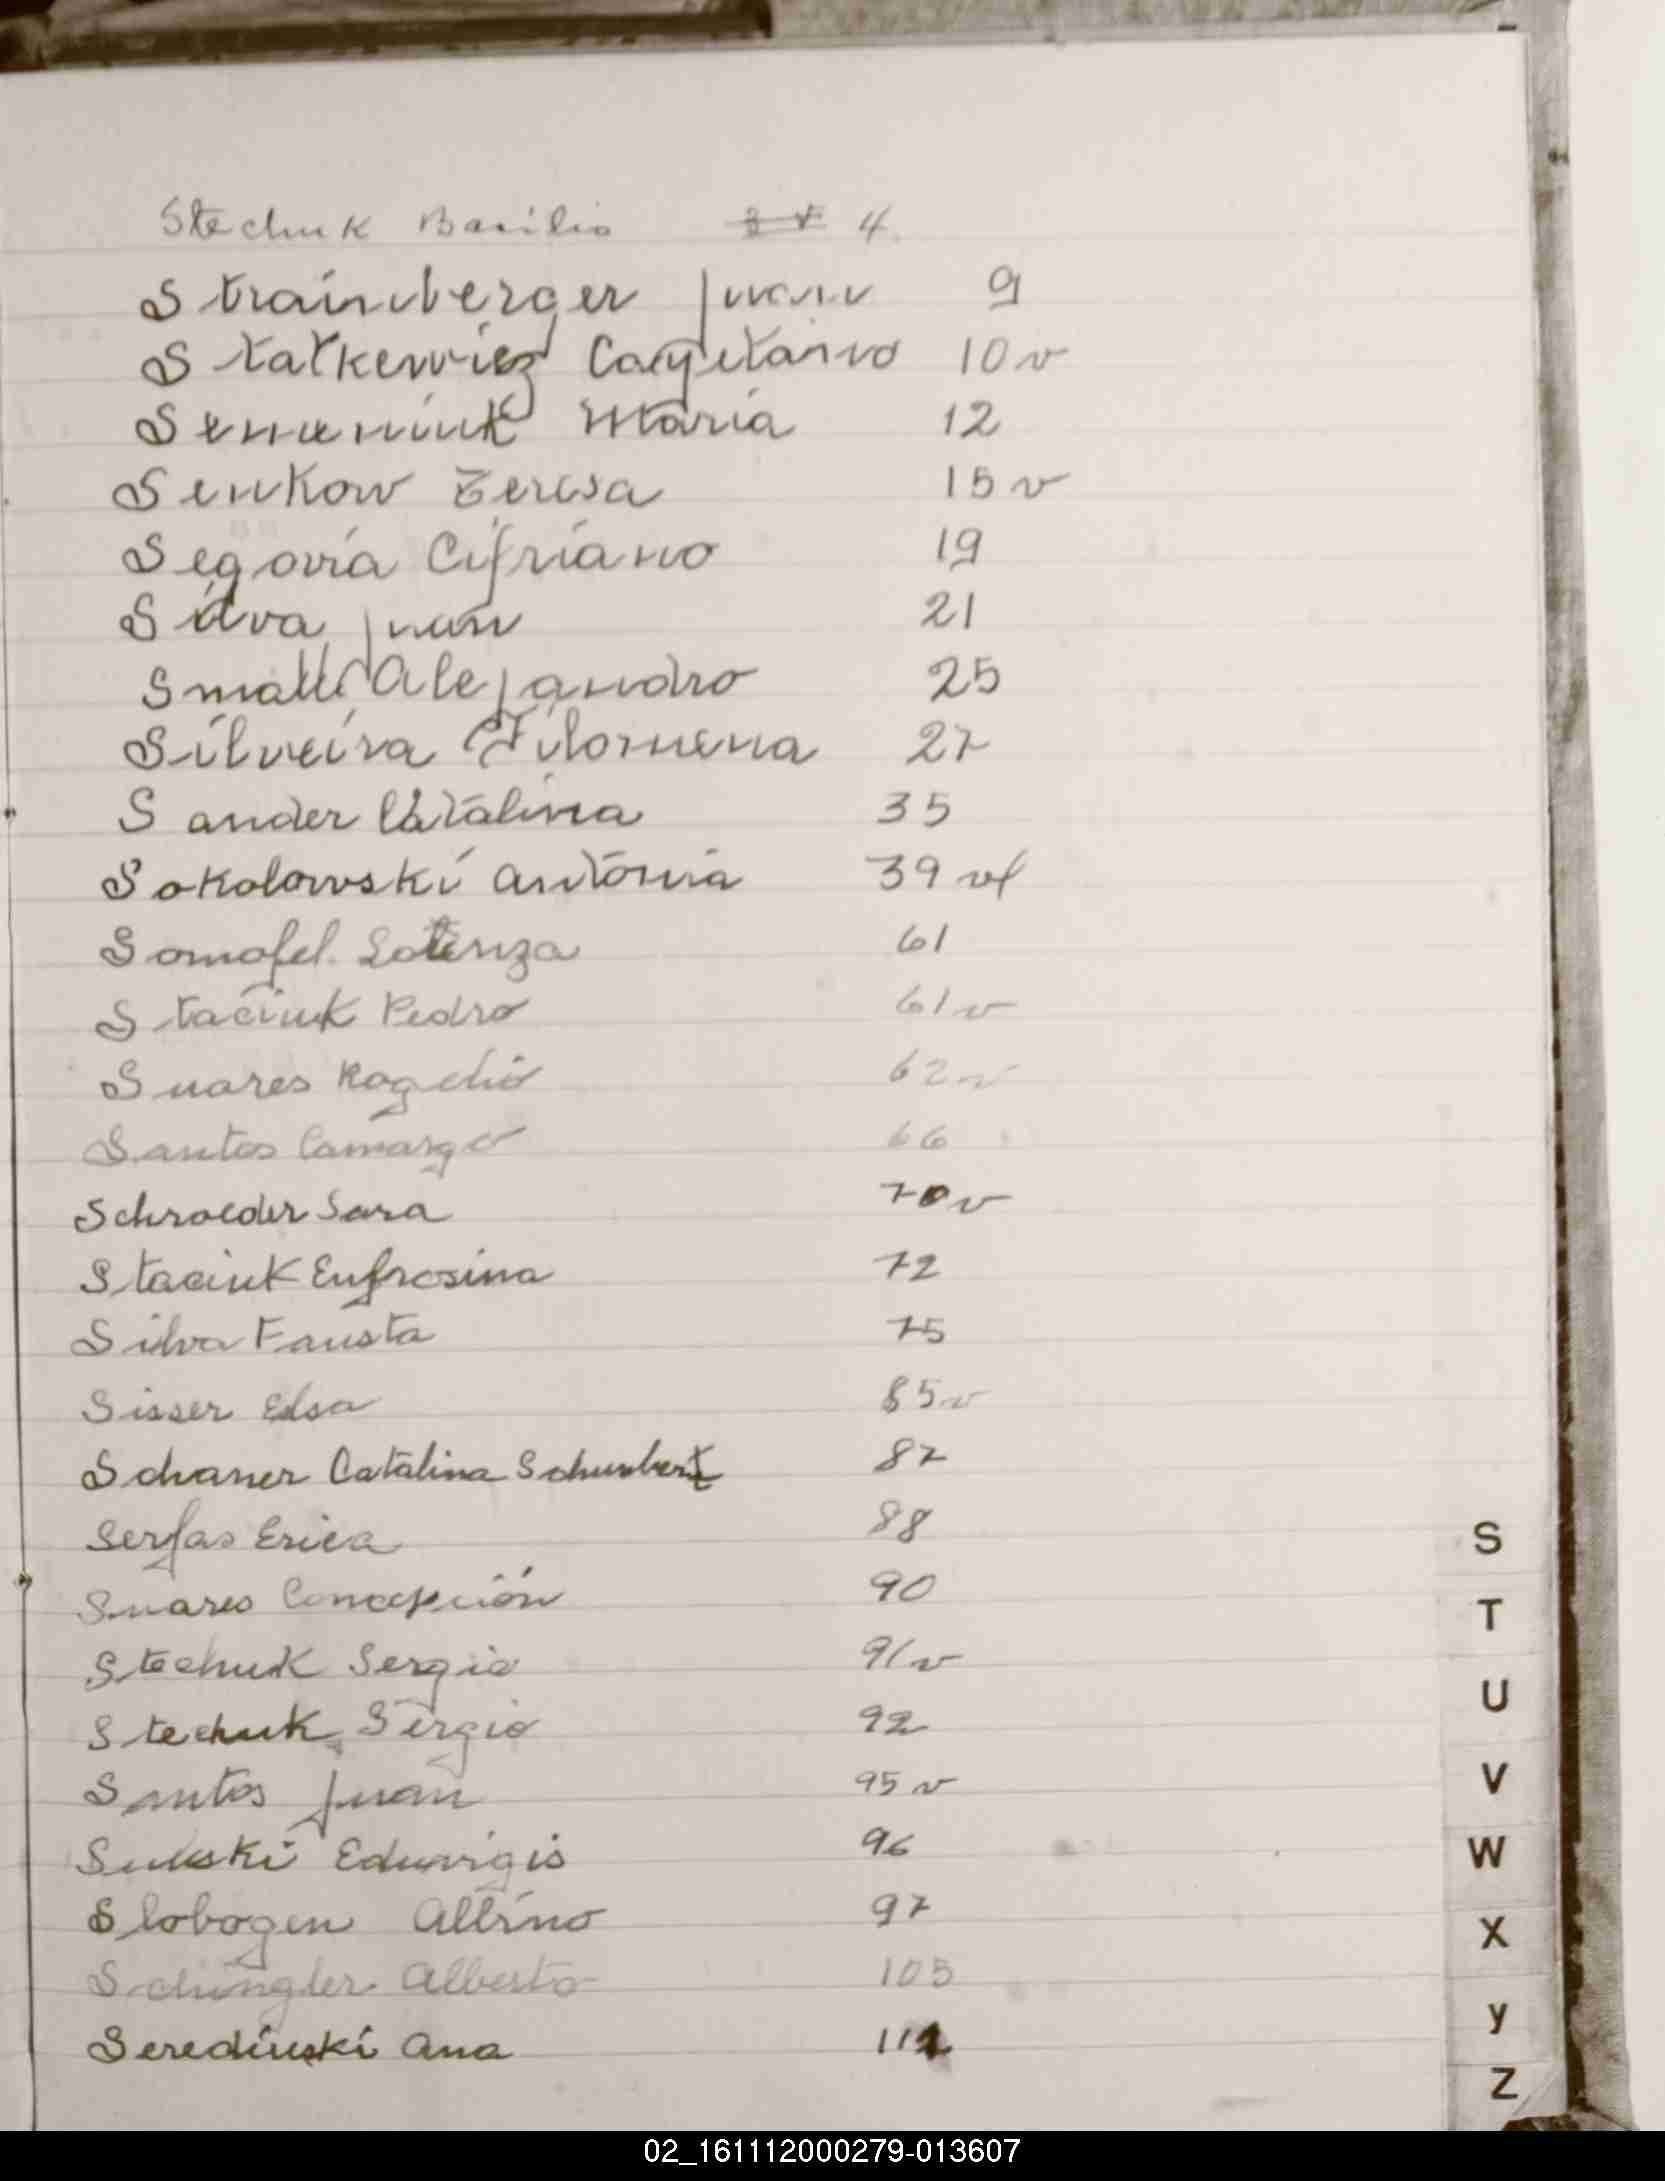 Stechuk Basilio 3 v 4
Strainberger Juan 9
Statkewicz Cayetano 10 v
Semeniuk Maria 12
Senkow Teresa 15 v
Segovia Cipriano 19
Silva Juan 21
Smalli Alejandro 25
Silveira Filomena 27
Sander Catalina 35
Sokolowski Antonia 39 v
Somofel 61
Staciuk Pedro 61 v
Suares Rogelio 62 v
Santos Camargo 66
Schroeder Sara 70 v
Staciuk Eufrosina 72
Silva Fausta 75
Sisser Elsa 85 v
Schaner Catalina Schumbert 87
Serfas Erica 88
Suares Concepción 90
Stechuk Sergio 91 v
Stechuk Sergio 92
Santos Juan 95 v
Eduvigis 96
Slobogen Albino 97
Schingler Alberto 105
Seredinski Ana
S
T
U
V
W
X
y
Z
02_161112000279-013607